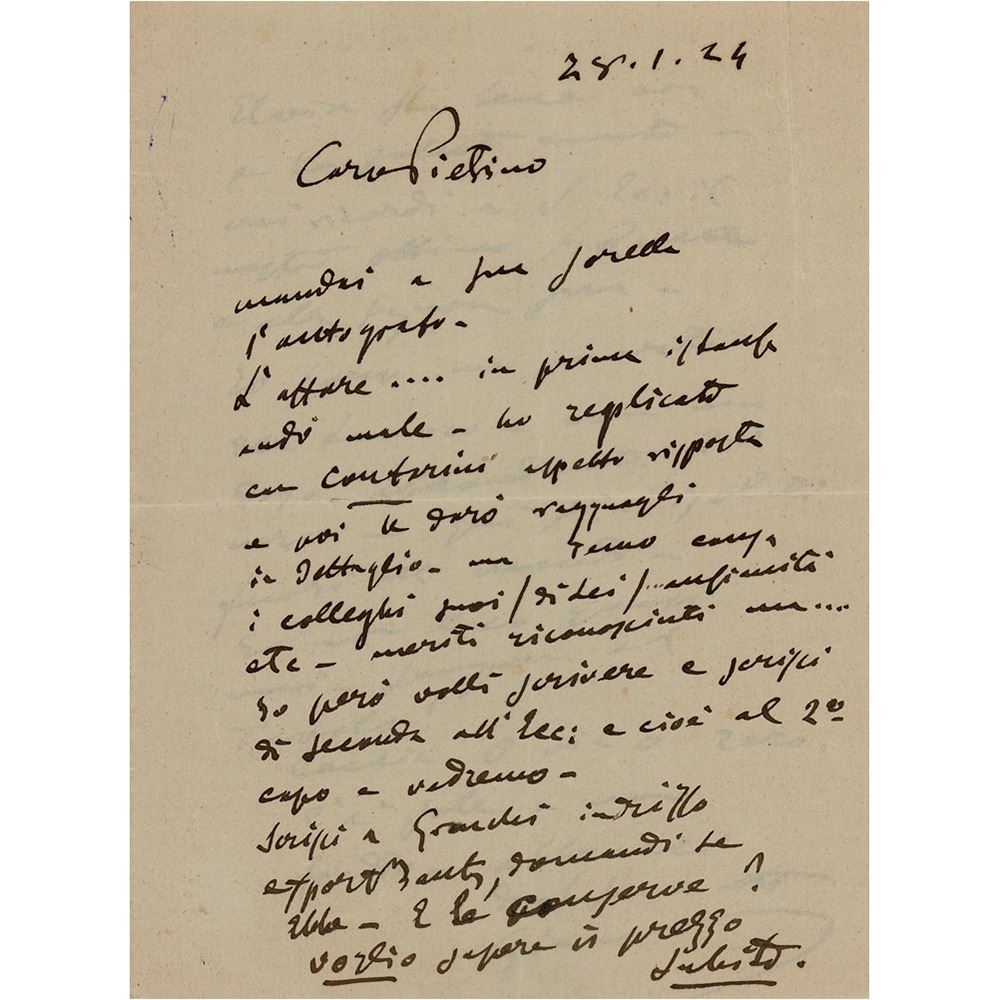 28.1.24
Caro Pietrino
mandai a sua sorella
l'autografo -
L'affare .... in prima istanza
andò male - ho replicato
con Contarini aspetto risposta
e poi te darò ragguagli
in dettaglio - ma temo
i colleghi suoi / di Lei / anzianità
etc - meriti riconosciuti ma ....
Io però volli scrivere e scrissi
di seconda all'Ecc: e cioè al 2º
capo e vedremo -
Scrissi a indrizzo
domandi se
Ebbe - E le conserve?
voglio sapere il prezzo
subito.